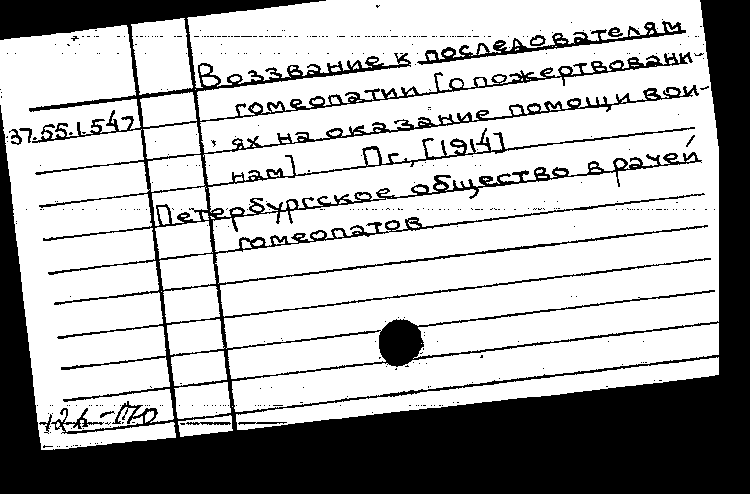 Воззвание к последователям
гомеопатии [о пожертвовани-
37.55.1.547
ях на оказание помощи вои-
нам]. Пг., [1914]
Петербургское общество врачей
гомеопатов